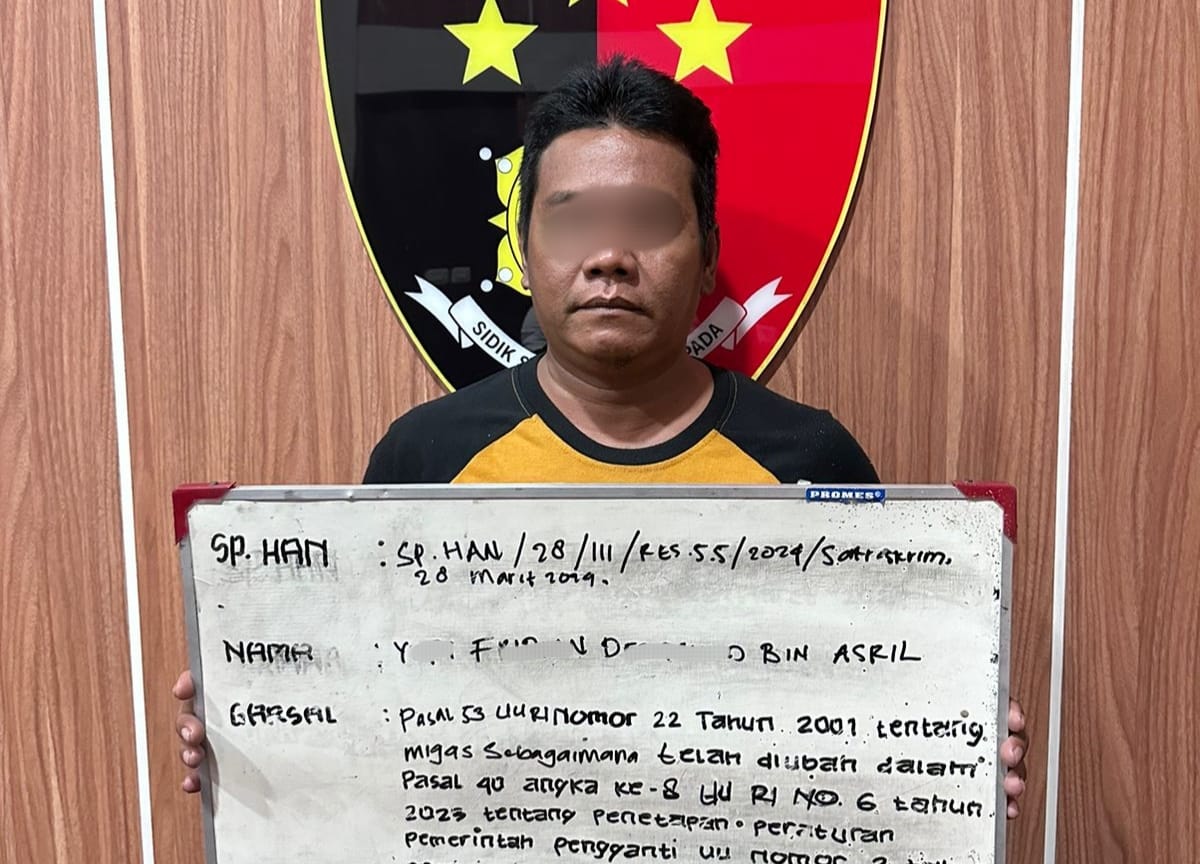 SIDIK
PADA
PROMES
SP. HAN : SP. HAN / 28 / III / RES.5.5/2024/Satreskrim,
28 Marit 2024.
NAMA : Y D BIN ASRIL
GARSAL : Pasal 53 UU RI Nomor 22 Tahun 2001 tentang
migas Sebagaimana telah diubah dalam
Pasal 40 angka ke-8 UU RI NO. 6 tahun
2023 tentang penetapan perаturan
Pemerintah pengganti uu nomor 2